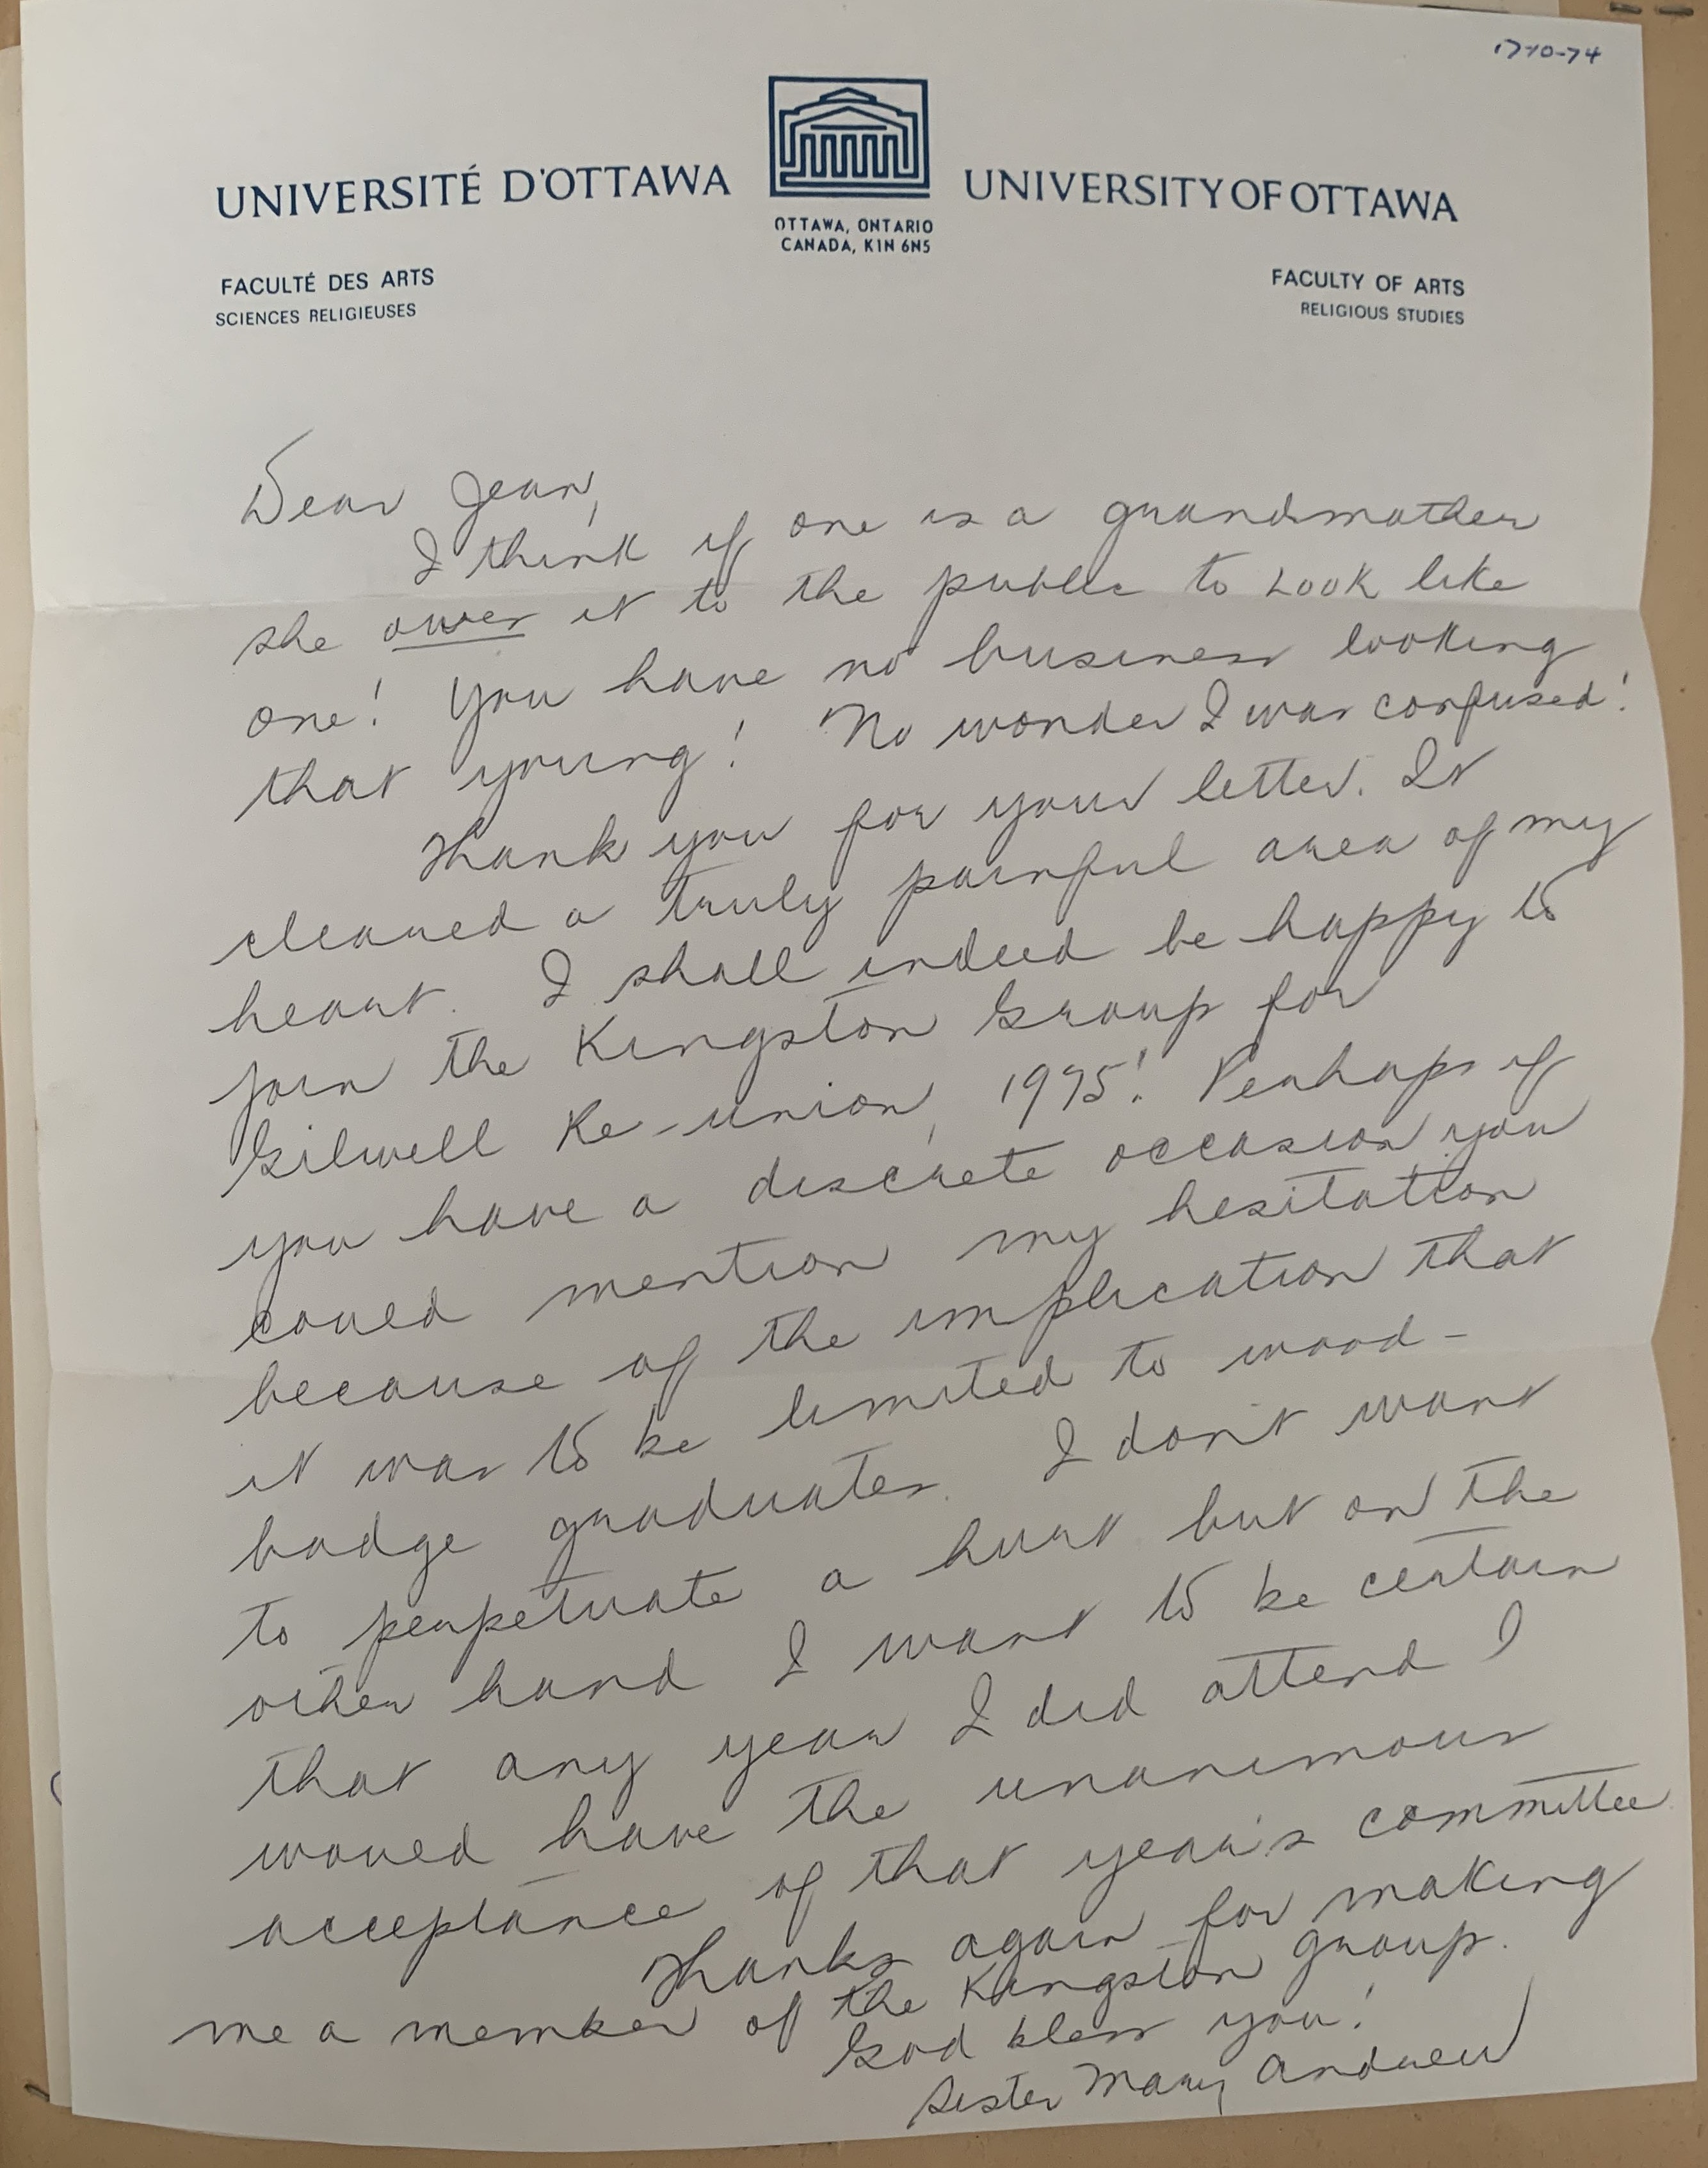 17-10-74
UNIVERSITÉ D'OTTAWA
UNIVERSITY OF OTTAWA
OTTAWA, ONTARIO
CANADA, K1N 6N5
FACULTÉ DES ARTS
SCIENCES RELIGIEUSES
FACULTY OF ARTS
RELIGIOUS STUDIES
Dear Jean,
I think if one is a grandmother
she owes it to the public to LOOK like
one! You have no business looking
that young! No wonder I was confused!
Thank you for your letter. It
cleared a truly painful area of my
heart. I shall indeed be happy to
join the Kingston Group for
Gilwell Re-union, 1975! Perhaps if
you have a discrete occasion you
could mention my hesitation
because of the implication that
it was to be limited to wood-
badge graduates. I don't want
to perpetuate a hurt but on the
other hand I want to be certain
that any year I did attend I
would have the unanimous
acceptance of that year's committee
Thanks again for making
me a member of the Kingston group.
God bless you!
Sister Mary Andrew